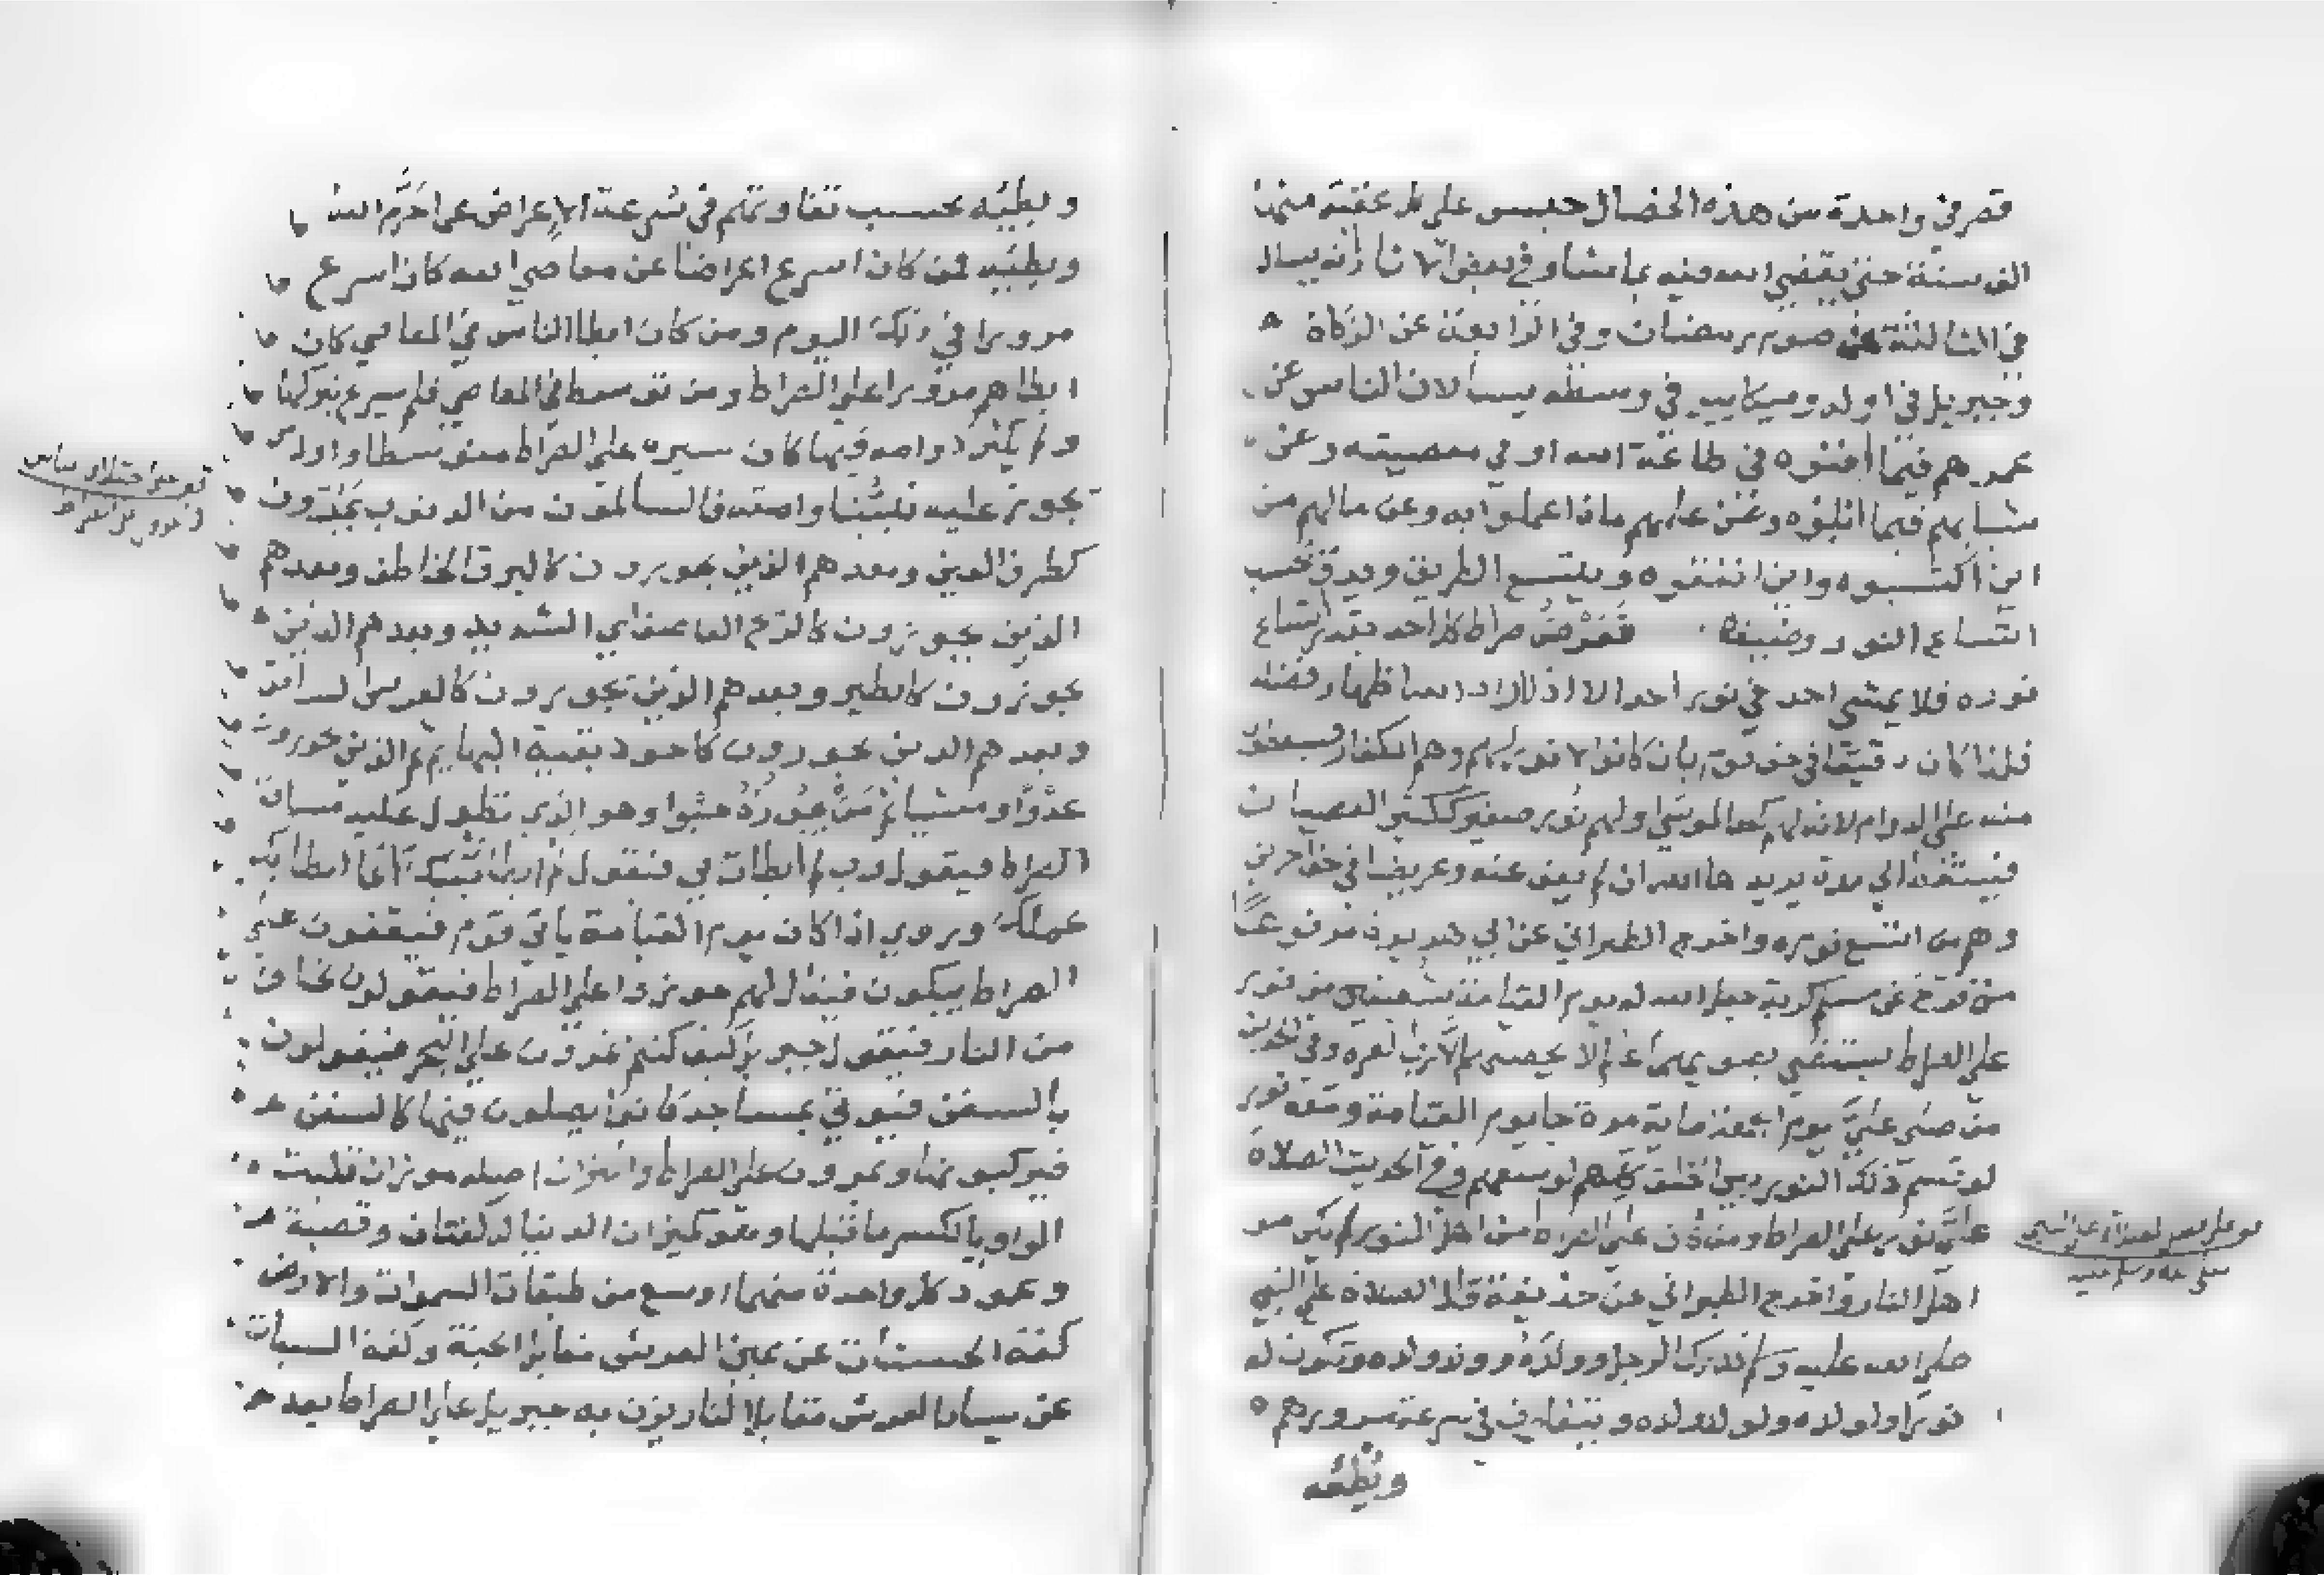 قصر في واحدة من هذه الخصال حبس على كل عقبة منها
الف سنة حتى يقضي الله فيه بما يشا وفي بعض الاثار انه يسال
في الثالثة عن صوم رمضان وفي الرابعة عن الزكاة
وجبريل في اوله وميكاييل في وسطه يسالان الناس عن
عمرهم فيما افنوه في طاعة الله او في معصيته وعن
شبابهم فيما ابلوه وعن علمهم ماذا عملوا به وعن مالهم من
اين اكتسبوه واين انفقوه ويتسع الطريق ويدق بحسب
اتساع النور وضيقه فعرض صراط كل احد بقدر اتساع
نوره فلا يمشي احد في نور احد الا اذا اراد الله اظهار فضله
فلذا كان دقيقا في حق قوم بان كانوا لا نور لهم وهم الكفار
منه على الدوام لانه لهم كحد الموسى او لهم نور صغير ككثير العصيان
الى مدة يريدها الله ان لم يعف عنه وعريضا في حق اخرين
وهم من اتسع نوره واخرج الطبراني عن ابي هريرة مرفوعا
من فرج عن مسلم كربة جعل الله له يوم القيامة شعبتين من نور
على الصراط يستضي بضويهما عالم لا يحصيهم الا رب العزة وفي الحديث
من صلى علي يوم الجمعة ماية مرة جا يوم القيامة ومعه نور
لو قسم ذلك النور بين الخلق كلهم لوسعهم وفي الحديث الصلاة
علي نور على الصراط ومن كان على الصراط من اهل النور لم يكن من
اهل النار واخرج الطبراني عن حذيفة قال الصلاة على النبي
صلى الله عليه وسلم تدرك الرجل وولده وولد ولده وتكون له
نورا ولولده ولولد ولده ويتفاوت في سرعة مرورهم
وبطئه
صلى الله عليه وسلم
وبطئه بحسب تفاوتهم في سرعة الاعراض عما حرم الله
وبطئه فمن كان اسرع اعراضا عن معاصي الله كان اسرع
مرورا في ذلك اليوم ومن كان ابطا الناس في المعاصي كان
ابطاهم مرورا على الصراط ومن توسط في المعاصي فلم يسرع بتركها
ولم يكثر دوامه فيها كان سيره على الصراط متوسطا واول من
يجوز عليه نبينا وامته فالسالمون من الذنوب يجوزون
كطرف العين وبعدهم الذين يجوزون كالبرق الخاطف وبعدهم
الذين يجوزون كالريح العاصف اي الشديد وبعدهم الذين
يجوزون كالطير وبعدهم الذين يجوزون كالفرس
وبعدهم الذين يجوزون كاجود بقية البهايم ثم الذين يجوزون
عدوا ومشيا ثم من يجوزه حبوا وهو الذي تطول عليه مسافة
الصراط فيقول رب لم ابطات بي فيقول لم ابطا بك انما ابطا بك
عملك وروي اذا كان يوم القيامة ياتي قوم فيقفون على
الصراط يبكون فيقال لهم جوزوا على الصراط فيقولون نخاف
من النار فيقول جبريل كيف كنتم تمرون على البحر فيقولون
بالسفن فيوتى بمساجد كانوا يصلون فيها كالسفن
فيركبونها ويمرون على الصراط والميزان اصله موزان قلبت
الواو يا لكسر ما قبلها وهو كميزان الدنيا له كفتان وقصبة
وعمود كل واحدة منهما اوسع من طبقات السموات والارض
كفة الحسنات عن يمين العرش مقابل الجنة وكفة السيات
عن يسار العرش مقابل النار يزن به جبريل على الصراط بعد